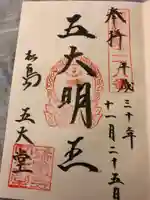 奉拝
平成三十年
十一月二十五日
五大明王
松島
五大堂